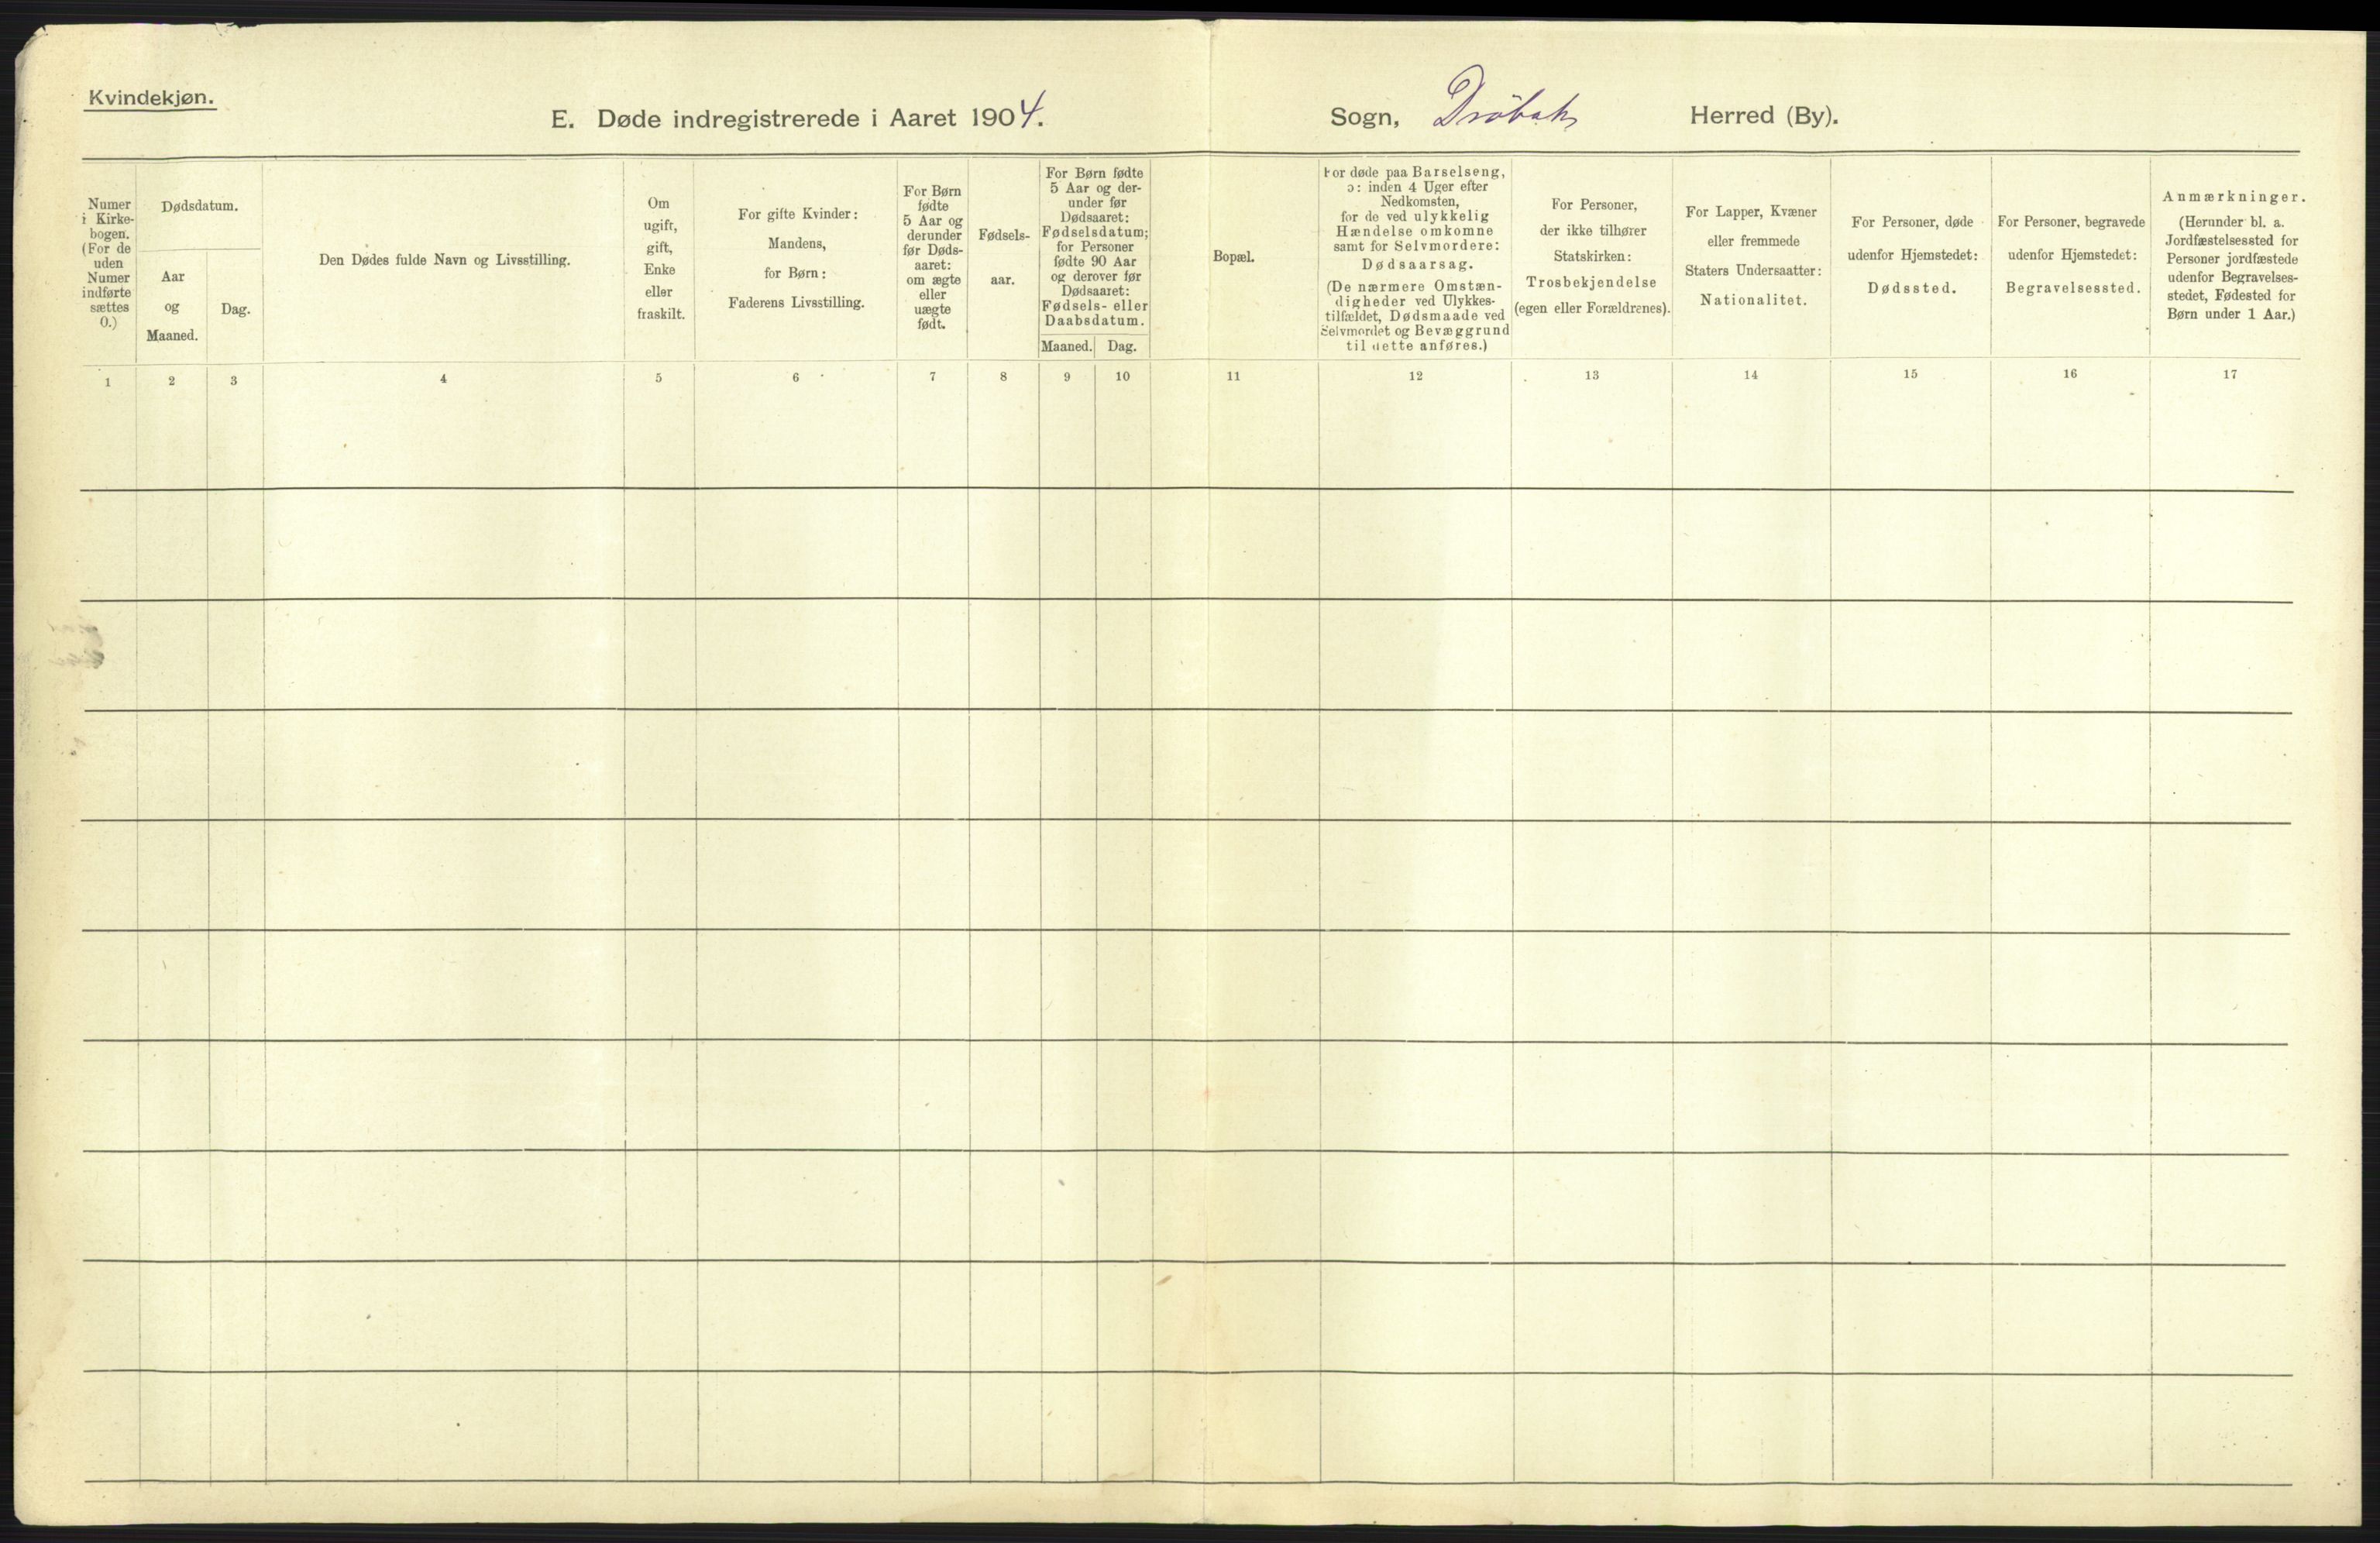 Kvindekjøn.
E. Døde indregistrerede i Aaret 1904.
Sogn, Drøbak Herred (By).
Numer
i Kirke-
bogen.
(For de
uden
Numer
indførte
sættes
0.)
Dødsdatum.
Aar
og
Maaned.
Dag.
Den Dødes fulde Navn og Livsstilling.
Om
ugift,
gift,
Enke
eller
fraskilt.
For gifte Kvinder:
Mandens,
for Børn:
Faderens Livsstilling.
For Børn
fødte
5 Aar og
derunder
før Døds-
aaret:
om ægte
eller
uægte
født.
Fødsels-
aar.
For Børn fødte
5 Aar og der-
under før
Dødsaaret:
Fødselsdatum;
for Personer
fødte 90 Aar
og derover før
Dødsaaret:
Fødsels- eller
Daabsdatum.
Maaned.
Dag.
Bopæl.
For døde paa Barselseng,
ɔ: inden 4 Uger efter
Nedkomsten,
for de ved ulykkelig
Hændelse omkomne
samt for Selvmordere:
Dødsaarsag.
(De nærmere Omstæn-
digheder ved Ulykkes-
tilfældet, Dødsmaade ved
Selvmordet og Bevæggrund
til dette anføres.)
For Personer,
der ikke tilhører
Statskirken:
Trosbekjendelse
(egen eller Forældrenes).
For Lapper, Kvæner
eller fremmede
Staters Undersaatter:
Nationalitet.
For Personer, døde
udenfor Hjemstedet:
Dødssted.
For Personer, begravede
udenfor Hjemstedet:
Begravelsessted.
Anmærkninger.
(Herunder bl. a.
Jordfæstelsessted for
Personer jordfæstede
udenfor Begravelses-
stedet, Fødested for
Børn under 1 Aar.)
1 2 3 4 5 6 7 8 9 10 11 12 13 14 15 16 17